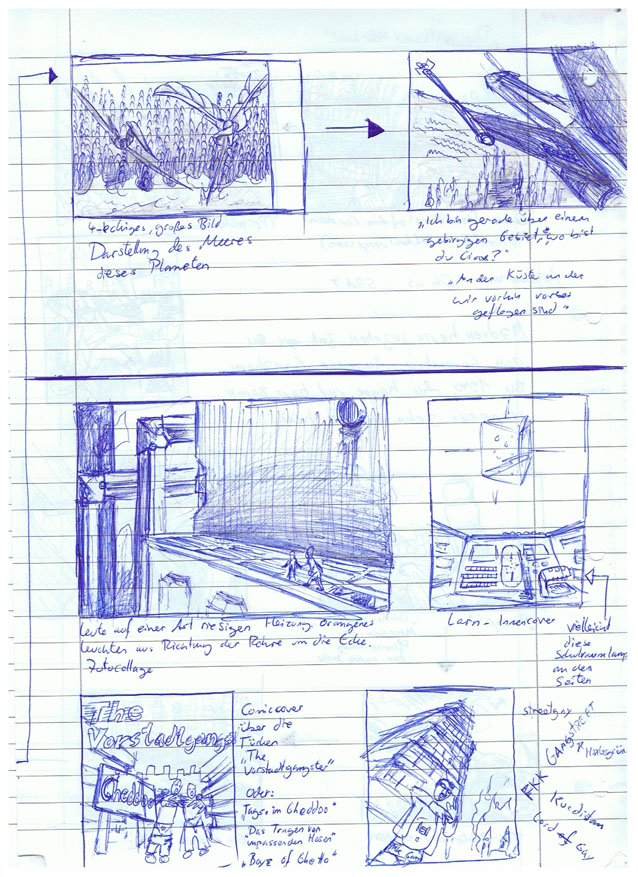 4-eckiges, großes Bild
Darstellung des Meeres
dieses Planeten
"Ich bin gerade über einem
gebirgigen Gebiet, wo bist
du
"An der Küste an der
wir vorhin vorbei
geflogen sind"
Leute auf einer Art riesigen Heizung oranges
leuchten aus Richtung der Röhre um die Ecke
Fotocollage
Larn-Innencover
vielleicht
diese
an den
Seiten
The
Vorstadtgangs
Gheddoo
Comiccover
über die
Tücken
"The
Vorstadtgangster"
oder:
"Jays im Gheddoo"
"Das Tragen von
unpassenden Hosen"
"Boys of Ghetto"
streetgay
GANGSTREET
FKK
Kurdistan
Lord of Gay